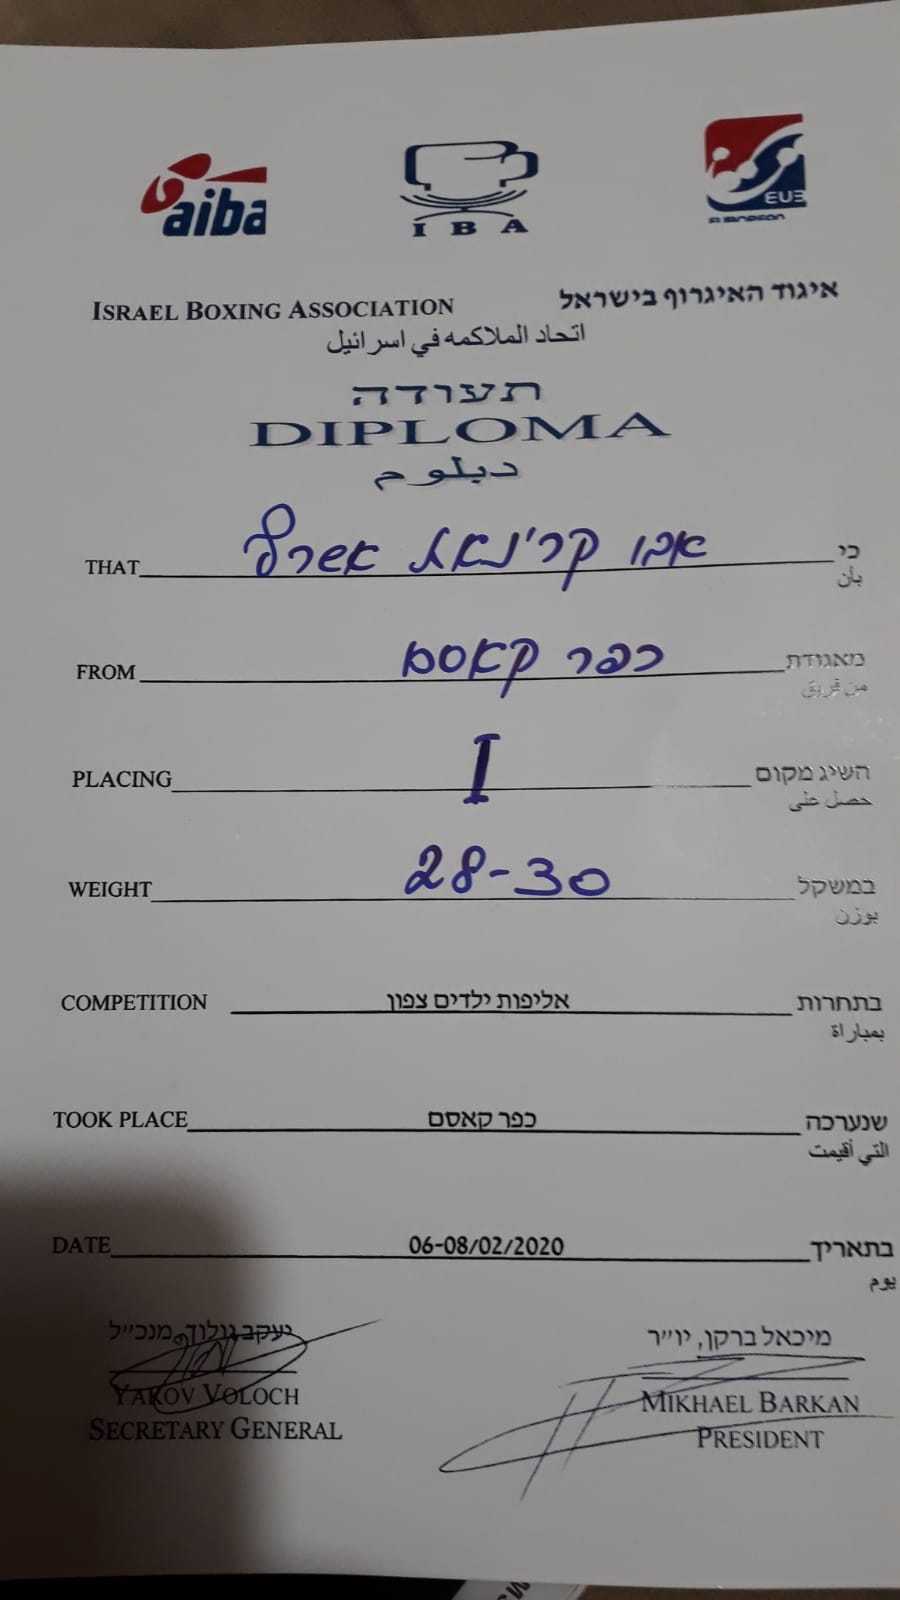 aiba
IBA
EUB
ISRAEL BOXING ASSOCIATION איגוד האיגרוף בישראל
اتحاد الملاكمه في اسرائيل
תעודה
DIPLOMA
دبلوم
THAT אבו קרינאת אשרף כי
بأن
FROM כפר קאסם מאגודת
من فريق
PLACING I השיג מקום
حصل على
WEIGHT 28-30 במשקל
بوزن
COMPETITION אליפות ילדים צפון בתחרות
بمباراة
TOOK PLACE כפר קאסם שנערכה
التي أقيمت
DATE 06-08/02/2020 בתאריך
يوم
יעקב וולוך, מנכ״ל מיכאל ברקן, יו״ר
YAKOV VOLOCH MIKHAEL BARKAN
SECRETARY GENERAL PRESIDENT